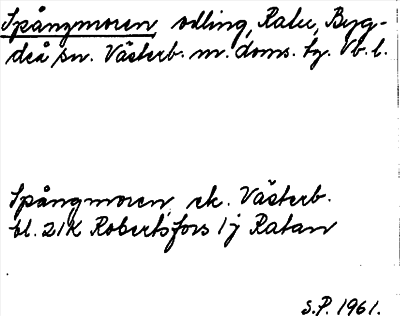 Spångmoren, odling, Ratu, Byg-
deå sn. Västerb. m. doms. tg. Vb. l.
Spångmoren, ek. Västerb.
bl. 21K Robertsfors 1j Ratan
S.P. 1961.